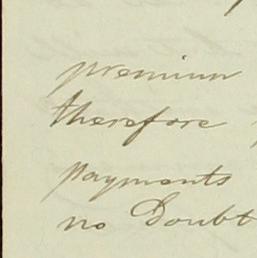 premium
therefore
payments
no Doubt